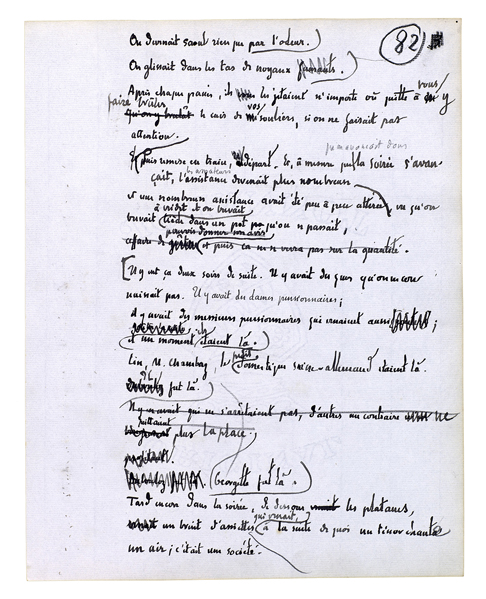 82
On devenait saoul rien que par l'odeur.)
On glissait dans les tas de noyaux fumants.)
Après chaque panier, ils les jetaient n'importe où quitte à vous y
faire brûler le cuir de vos souliers, si on ne faisait pas
attention.
Puis remise en train, départ. Et, à mesure que la soirée s'avan-
çait, l'assistance devenait plus nombreuse
et une nombreuse assistance avait été peu à peu attirée, vu qu'on
buvait tiède dans un pot qu'on se passait,
affaire de pouvoir donner son avis et puis ça ne se verra pas sur la quantité.
Il y eut ça deux soirs de suite. Il y avait des gens qu'on ne con-
naissait pas. Il y avait des dames pensionnaires;
il y avait des messieurs pensionnaires qui venaient aussi;
et un moment étaient là.)
Lin, M. Chambaz, le petit domestique suisse-allemand étaient là.
fut là.)
Il y en avait qui ne s'arrêtaient pas, d'autres au contraire ne
quittaient plus la place.
Georgette fut là.)
Tard encore dans la soirée, de dessous les platanes,
un bruit d'assiettes qui venait, à la suite de quoi un ténor chanta
un air; c'était une société.